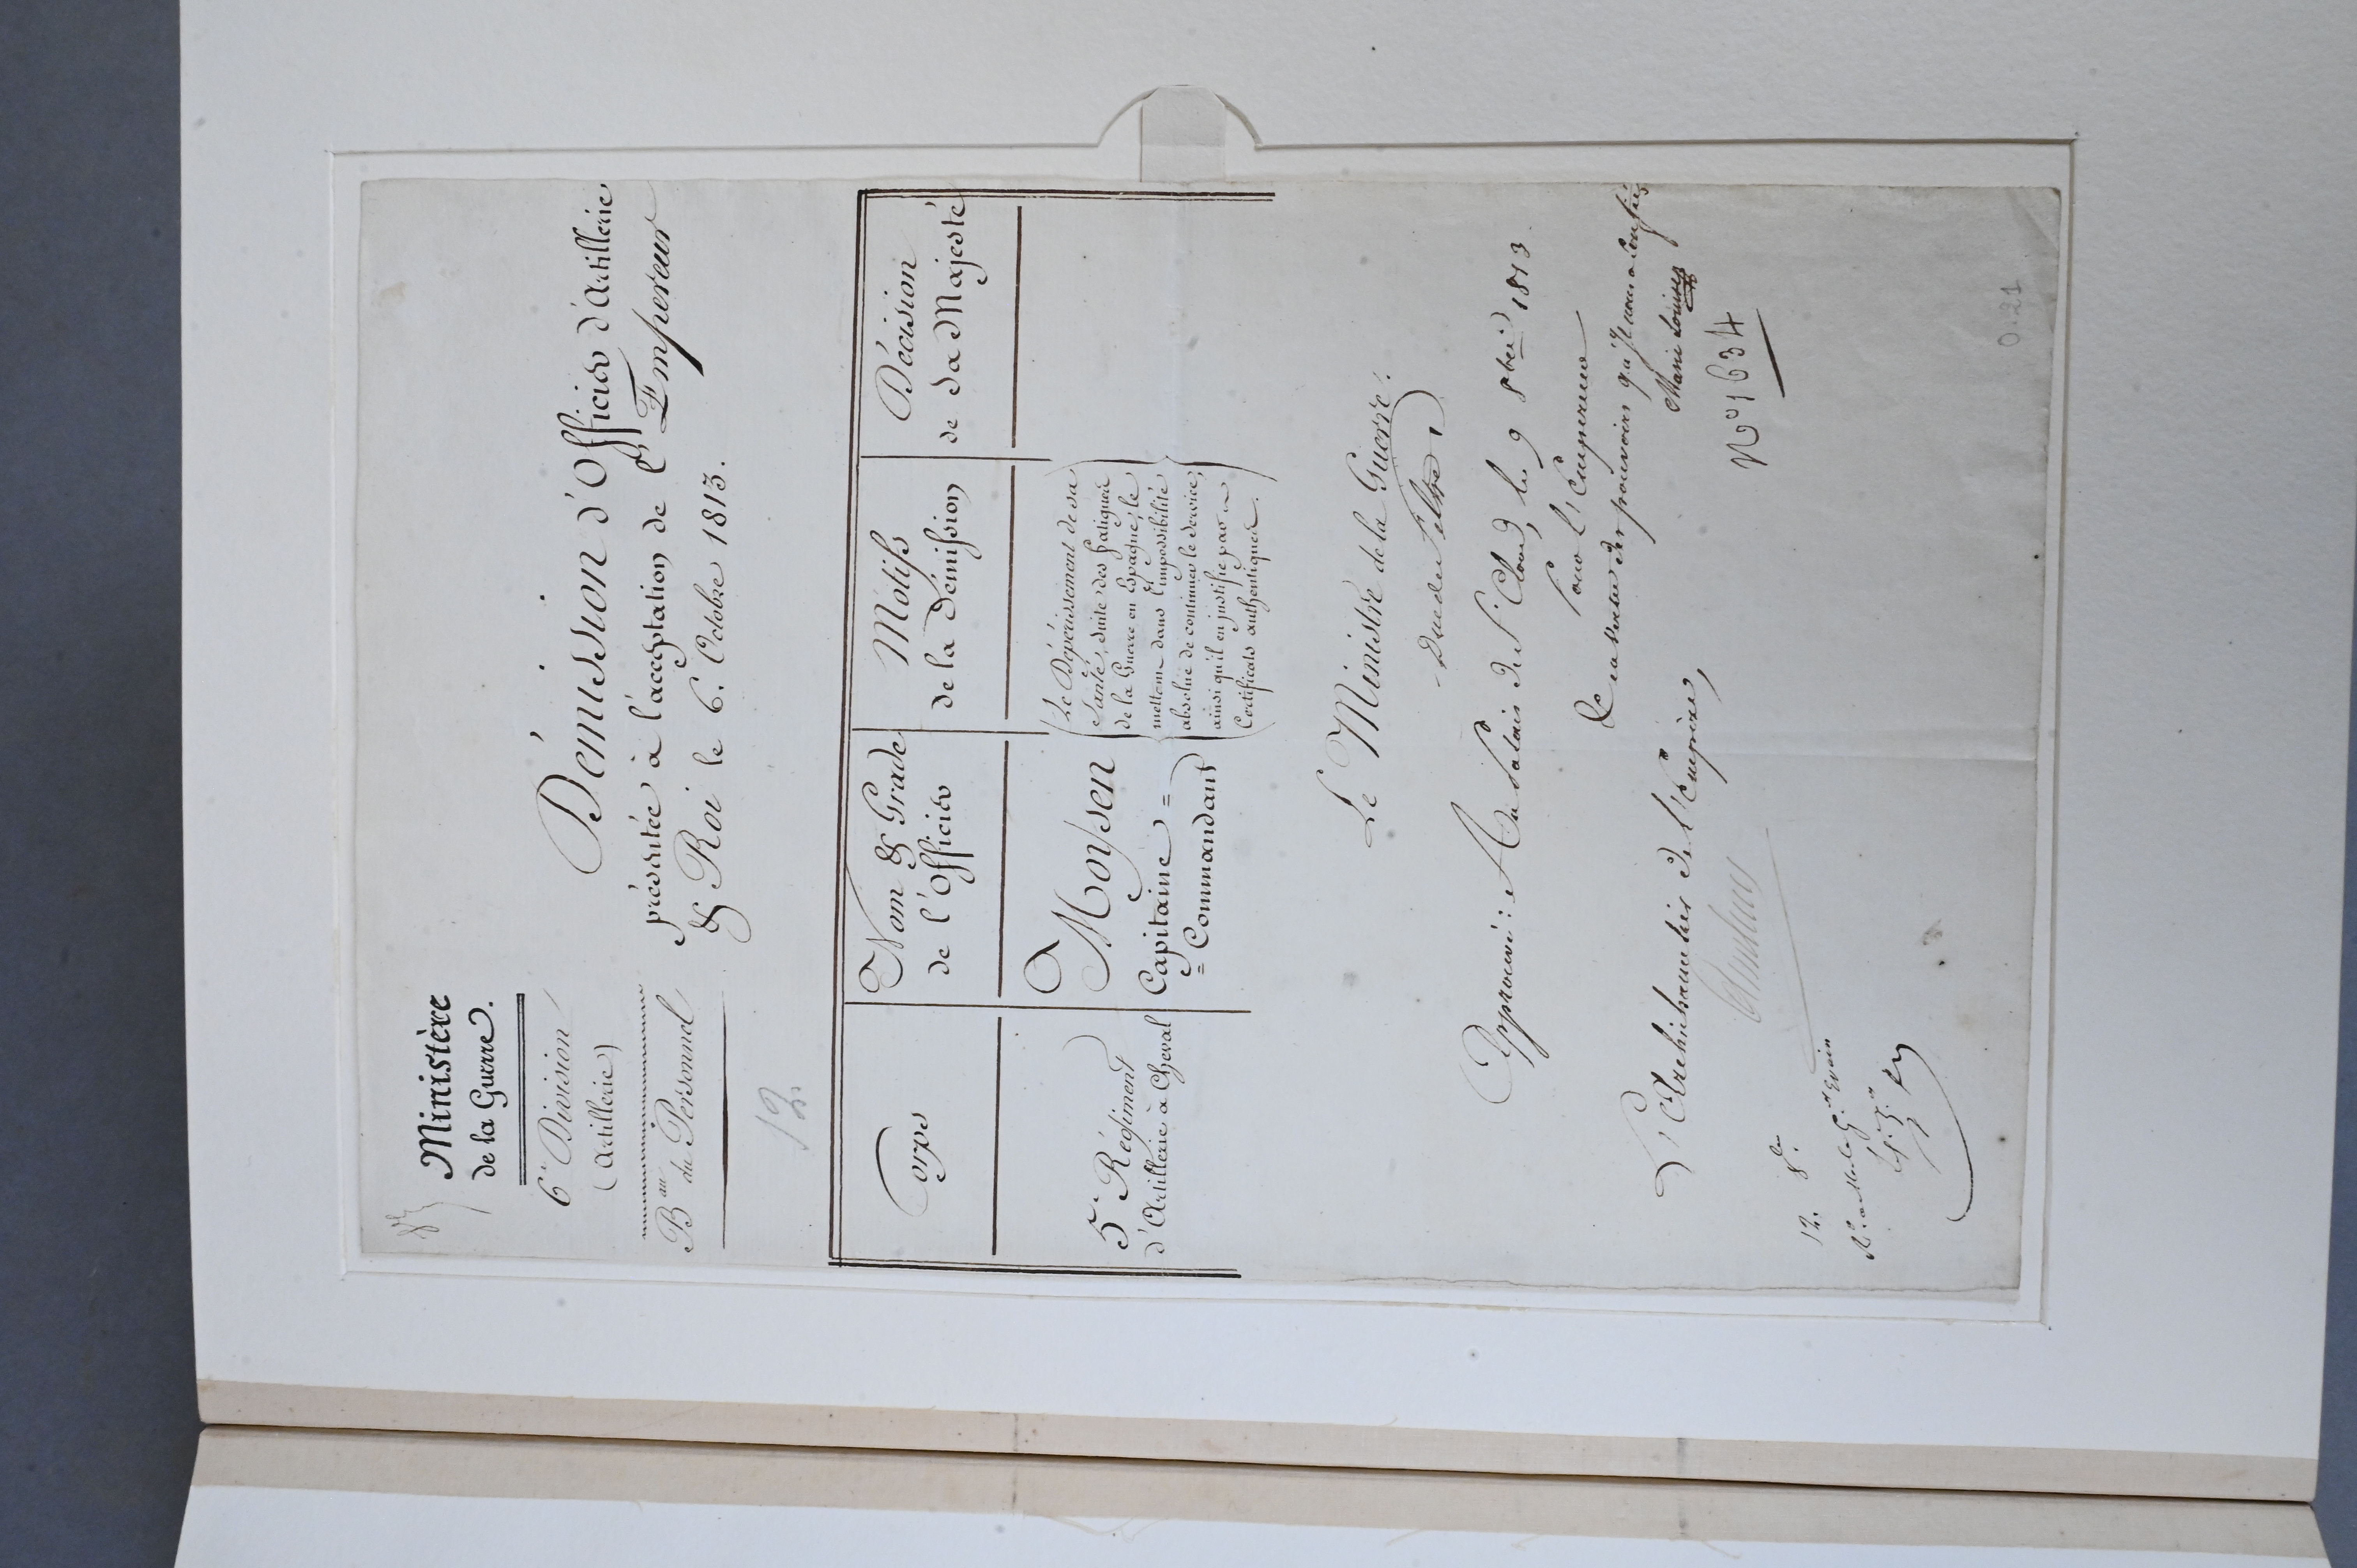 Ministère
de la Guerre.
6e Division
(Artillerie)
Bau du Personnel
12
Démission d'Officier d'Artillerie
présentée à l'acceptation de l'Empereur
& Roi le 6. Octobre 1813.
Corps
Nom & Grade
de l'Officier
Motifs
de la Démission
Décision
de Sa Majesté
5e Régiment
d'Artillerie à Cheval
Moysen
Capitaine =
= Commandant
Le Dépérissement de sa
Santé, suite des fatigues
de la Guerre en Espagne, le
mettent dans l'impossibilité
absolue de continuer le service;
ainsi qu'il en justifie par
Certificats authentiques.
Le Ministre de la Guerre.
Duc de Feltre
Approuvé: Au Palais de St Cloud, le 9 8bre 1813.
Pour l'Empereur
& en vertu des pouvoirs qu'Il nous a confiés
Marie Louise
No 1634
L'Archichancelier de l'Empire,
12. 8bre
0.21